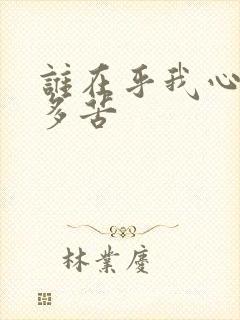 誰在乎我心
多苦
林業慶